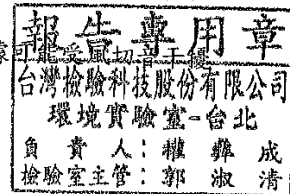 報告專用章
可能受風切音干擾
台灣檢驗科技股份有限公司
環境實驗室-台北
負責人：權彝成
檢驗室主管：郭淑清